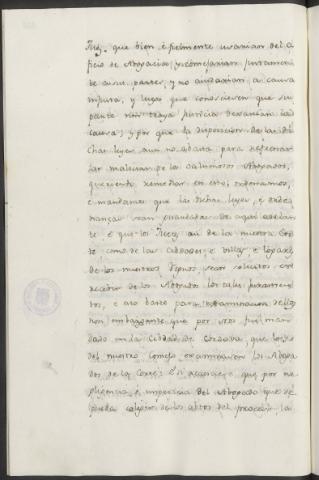 Juez, que bien, é fielmente usarian del o
ficio de Abogacia, y aconsejarian justament
te a sus partes, y no ayudarian, a causa
injusta, y luego que conosciesen que su
parte no traya justicia dexarian la
causa; y por que la disposicion de las di
chas leyes aun no abasta para refrenar
las malicias de los calumnosos Abogados,
queriendo remediar en esto, ordenamos,
e mandamos que las dichas leyes, e orden
nanças sean guardadas de aqui adelan
te e que los Jueces, asi de la nuestra Cor
te como de las cibdades, e villas, e logares
de los nuestros Reynos sean solicitos en
rescebir de los Abogados los tales juramento
s, e no baste para examinacion dellos
non embargante que por nos fue man
dado en la Cibdad de Cordova, que los
del nuestro Consejo examinasen los Aboga
dos de la Corte: E si acaesce, que por ne
gligencia, e impericia del Abogado que se
pueda colegir de los abtos del proceso, la